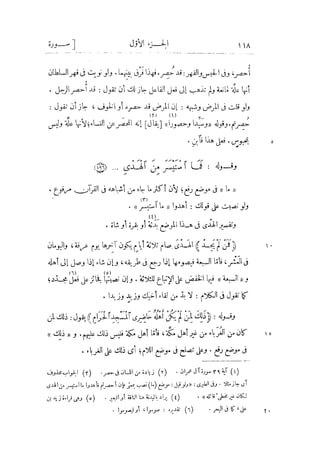 ١١٨ الجزء الأول [ سورة
أحصر، وفى الحبس والقهر: قد حُصِر. فهذا فَرْق بينهما. ولو نويت فى قهر السلطان
أنها علّة مانعة ولم تذهب إلى فعل الفاعل جاز لك أن تقول: قد أُحصر الرجل.
ولو قلت فى المرض وشبهه: إن المرض قد حصره أو الخوف، جاز أن تقول:
حُصِرتم. وقوله «وسيّدا وحصورا» [يقال] إنه المحصَر عن النساء؛ لأنها علّة وليس
بمحبوس. فعلى هذا فابنِ. ٥
وقوله: فَمَا ٱسْتَيْسَرَ مِنَ ٱلْهَدْىِ ... (١٩٦)
«ما» فى موضع رفع؛ لأن أكثر ما جاء من أشباهه فى القرآن مرفوع.
ولو نصبت على قولك: أهدوا «ما استيسر».
وتفسير الهدى فى هذا الموضع بَدَنة أو بقرة أو شاة.
(فَمَنْ لَمْ يَجِدْ) الهَدْى صام ثلاثة أيام يكون آخرها يوم عرفة، واليومان ١٠
فى العَشْر، فأمّا السبعة فيصومها إذا رجع فى طريقه، وإن شاء إذا وصل إلى أهله
و«السبعة» فيها الخفض على الإتباع للثلاثة. وإن نصبتها فجائز على فعل مجدّد؛
كما تقول فى الكلام: لا بدّ من لقاء أخيك وزيدٍ وزيدا.
وقوله: (ذٰلِكَ لِمَنْ لَمْ يَكُنْ أَهْلُهُ حَاضِرِى ٱلْمَسْجِدِ ٱلْحَرَامِ) يقول: ذلك لمن
كان من الغرباء من غير أهل مكّة، فأمّا أهل مكة فليس ذلك عليهم. و«ذلك» ١٥
فى موضع رفع. وعلى تصلح فى موضع اللام؛ أى ذلك على الغرباء.
(١) آية ٣٩ سورة آل عمران. (٢) زيادة من اللسان فى حصر. (٣) الجواب محذوف
أى جاز مثلا. وفى الطبرى: «ولو قيل: موضع (ما) نصب بمعنى فإن أحصرتم فأهدوا ما استيسر من الهدى
لكان غير مخطئ قائله».
٢٠